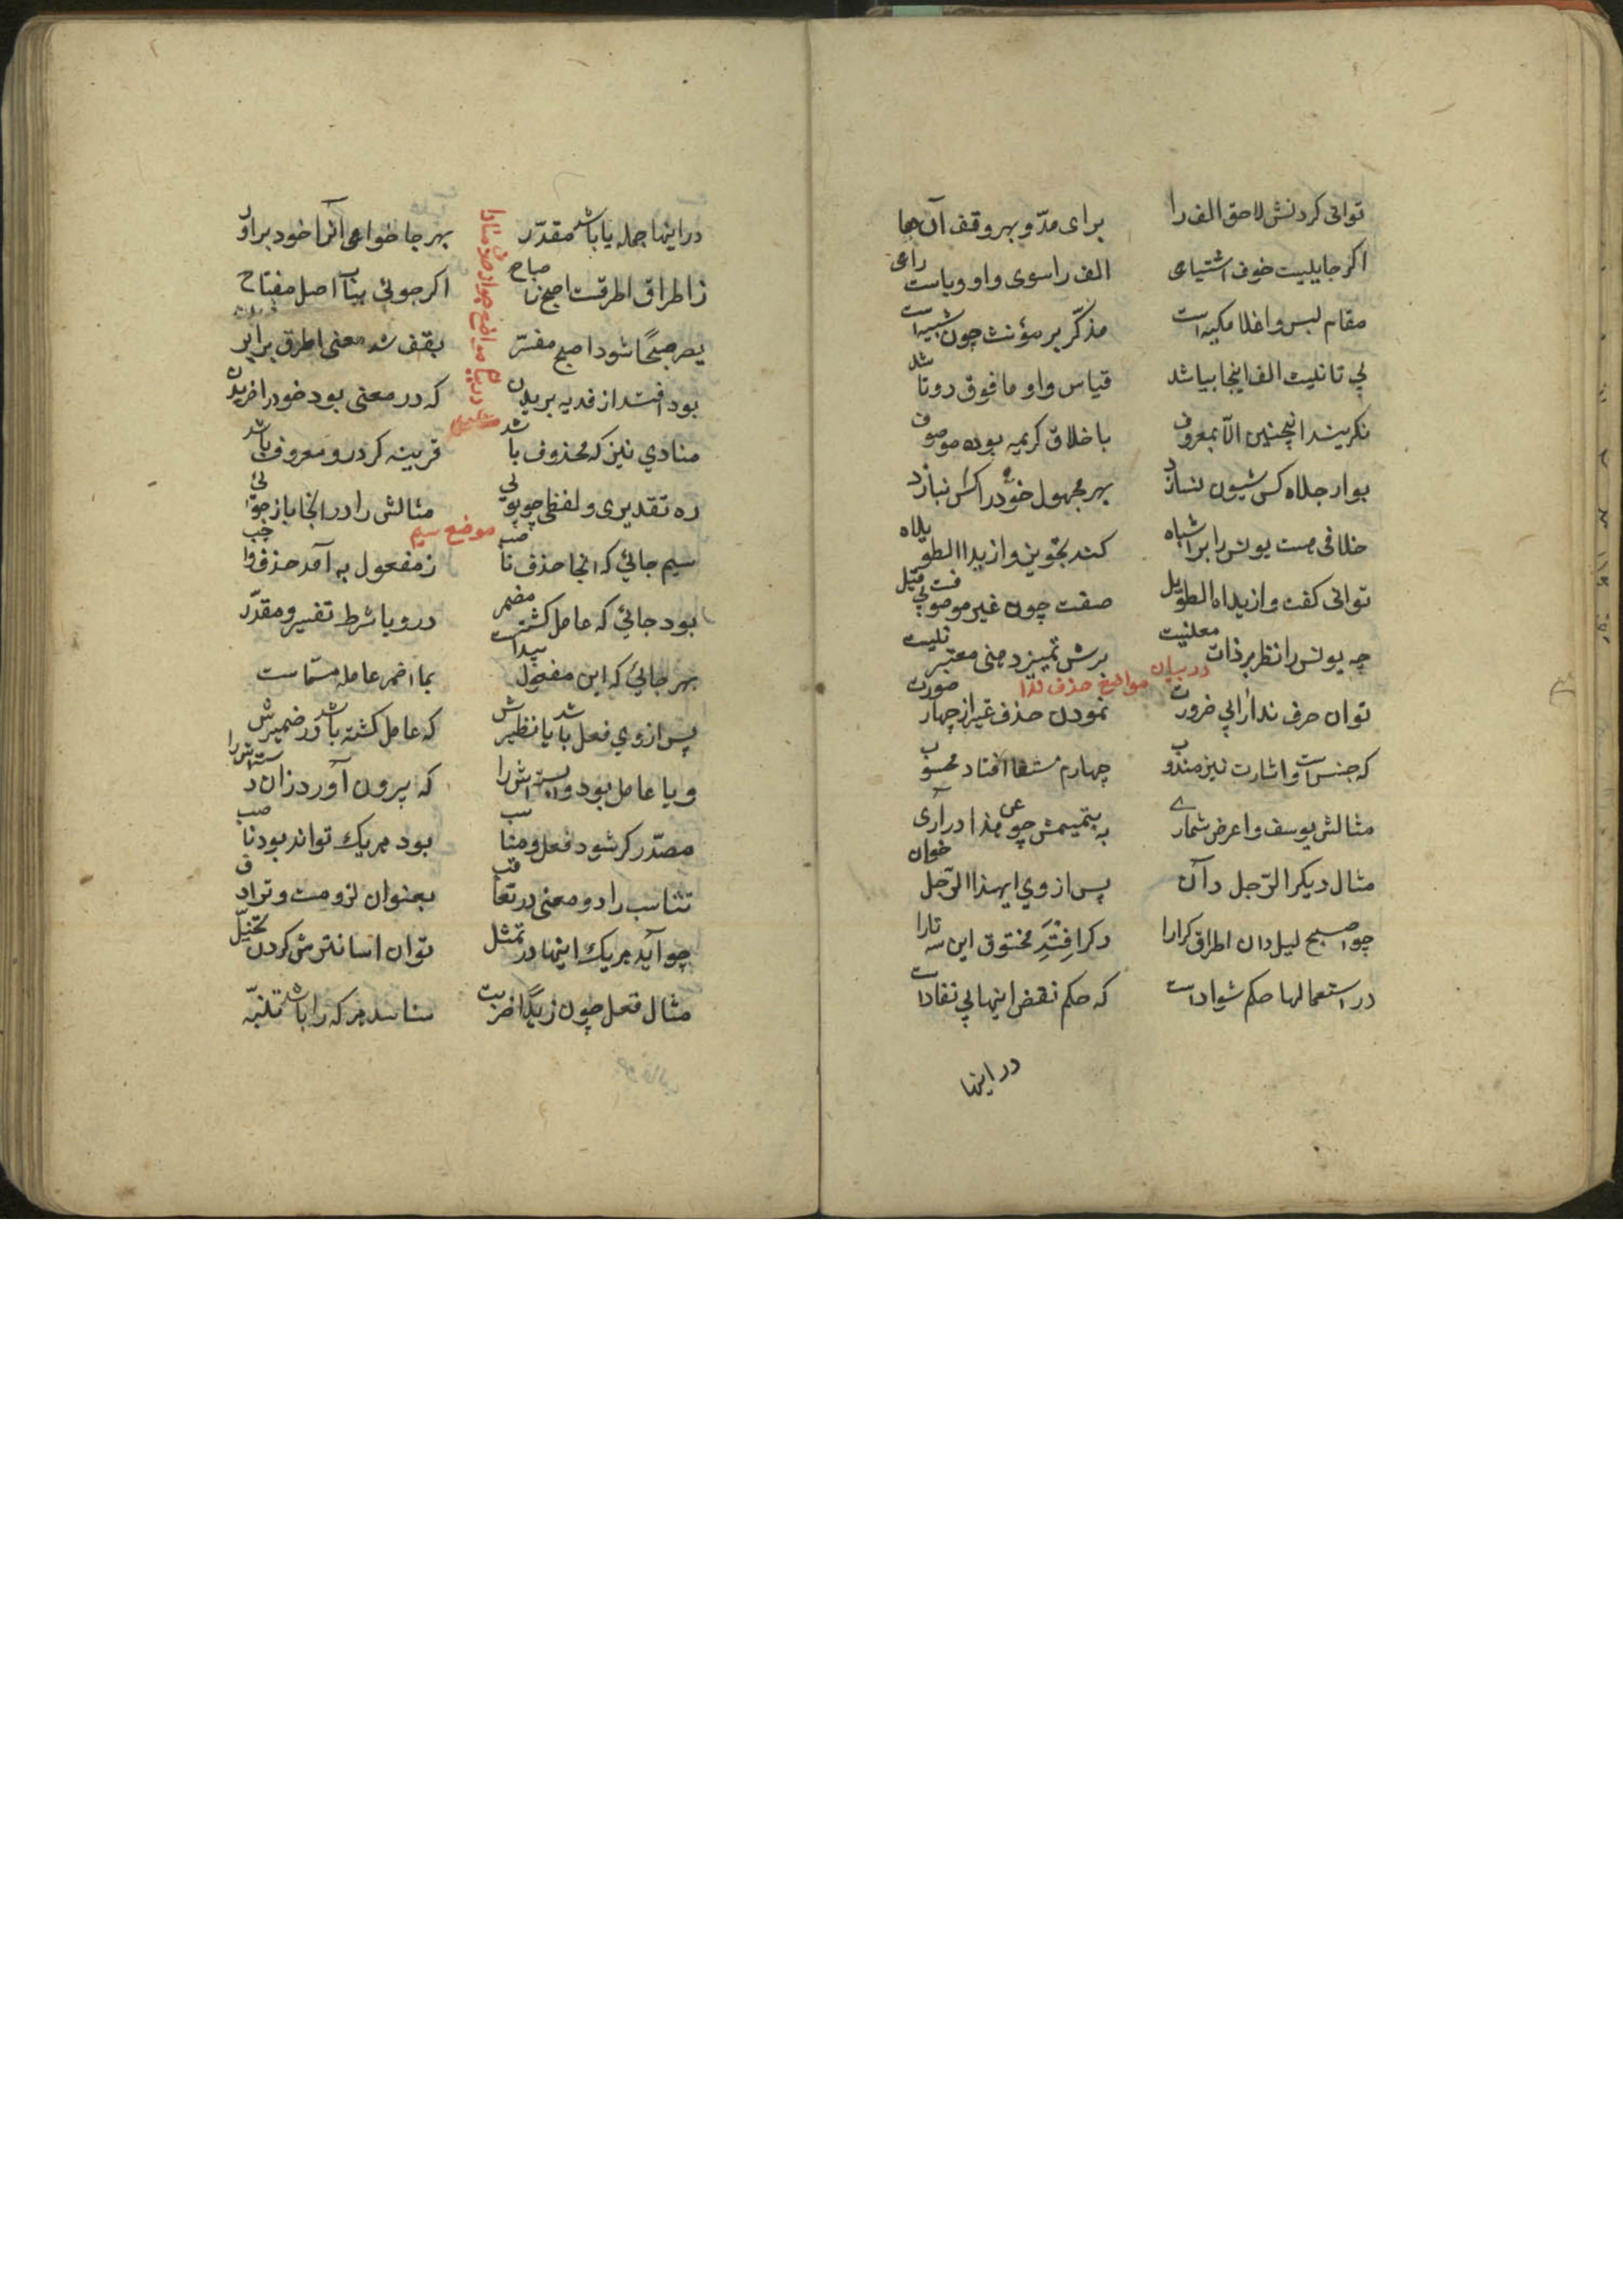 توانی کردنش لاحق الف را برای مدّ و بهر وقف آن جا
اکر جایلیست خوف اشتیاعی الف را سوی واو و یاست راعی
مقام لبس واغلا مکیه است مذکّر بر مؤنث چون شبیه است
پی تانلیث الف اینجا بیاشد قیاس واو ما فوق دوتا شد
نکریند اینچنین الّا بمعروف باخلاق کریمه بوده موصوف
بوار جلاه کس شیون نسازد بهر مجهول خود را کس نبازد
خلافی هست یونس را بر اشباه کند تجویز وازید الطویلاه
توانی کفت وازیداه الطویل صفت چون غیر موصوفست
چه یونس را نظر بر ذات معنیست برش تمییز معتبر نیست
در بیان مواضع حذف ندا
توان حرف ندا را بی ضرورت نمودن حذف غیر از چهار صورت
که جنس است و اشارت نیز مندوب چهارم مستغاث افتاد محسوب
مثالش یوسف واعرض شماری به تتمیمش چو عن هذا در آری
مثال دیکر الرّجل دان پس از وی ایهذا الرّجل خوان
چو اصبح لیل دان اطرق کرا را دکر افتد مخنوق این سه تا را
در استعمالها حکم شواذ است که حکم نقض اینها بی نفاذ است
در اینها
در اینها جمله یا باشد مقدّر بهر جا خواهی آنرا خود براور
ز اطراق اطرقست اصبح ز اصباح اکر جوئی بیان اصل مفتاح
یصر صبحًا شود اصبح مفسّر بقف شد معنی اطرق برابر
بود افتد از فدیه بریدن که در معنی بود خود را خریدن
منادی نیز که محذوف باشد قرینه کر درو معروف باشد
ره تقدیری و لفظی چو پوئی مثالش را در اینجا باز جوئی
موضع سیم
سیم جائی که انجا حذف ناصب ز مفعول به آمد حذف واجب
بود جائی که عامل کشت مضمر درو با شرط تفسیر و مقدّر
بهر جائی که این مفعول پیداست بما اضمر عامله مسمّاست
پس از وی فعل باشد یا نظیرش که عامل کشته باشد در ضمیرش
و یا عامل بود وابسته اش را که بیرون آورد زان دسته اش را
مصدّر کر شود فعل و مناسب بود هریک تواند بود ناصب
تناسب را دو معنی در تعاقب بعنوان لزومست و ترادف
چو آید هریک اینها در تمثل توان اسانترش کردن تخیّل
مثال فعل چون زیدًا ضربت شناسد هر که را باشد تنبّه